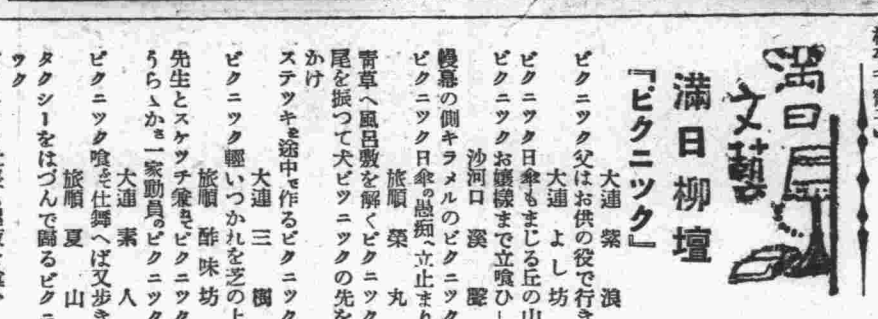 満日文藝
滿日柳壇
『ピクニック』
大連 紫浪
ピクニツク父はお供の役で行き
大連 よし坊
ピクニツク日傘もまじる丘の山
ピクニツクお孃様まで立喰ひし
沙河口 溪聲
幔幕の側キラメルのピクニツク
ピクニツク日傘の愚痴へ立止まり
旅順 榮丸
青草へ風呂敷を解くピクニツク
尾を振つて犬ピツニツクの先を
かけ
ステツキを途中で作るピクニツク
大連 三樹
ピクニツク輕いつかれを芝の上
旅順 酢味坊
先生とスケツチ兼ねてピクニツク
うらゝかさ一家動員のピクニツク
大連 素人
ピクニツク喰べて仕舞へば又歩き
旅順 夏山
タクシーをはづんで歸るピクニ
ツク